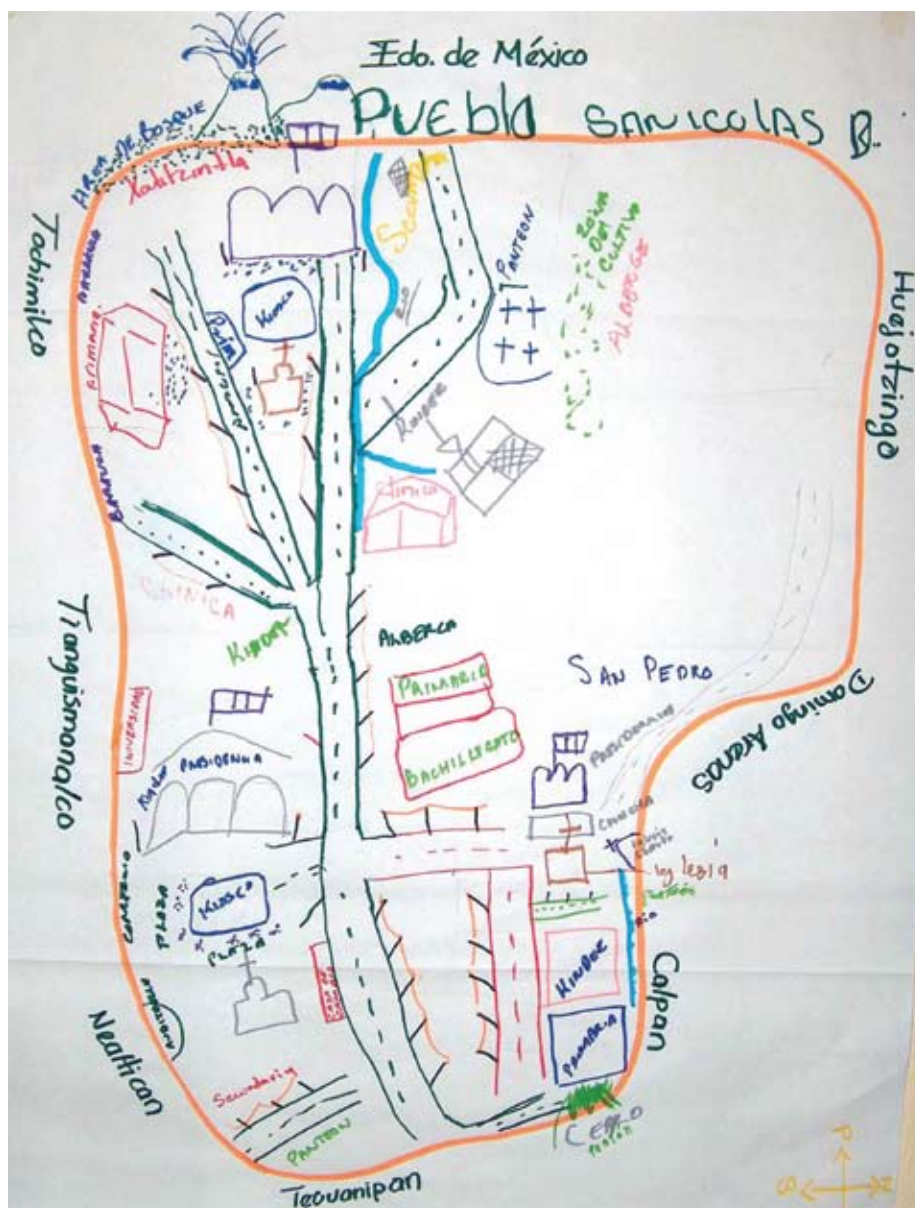 Edo. de México
PUEBLA
SANICOLAS B.
AREA DE BOSQUE
Xalitzintla
Tochimilco
BARRANCA
PRIMARIA
Prim
KIOSCO
RIO
PANTEON
ZONA
DE
CULTIVO
ALBERGE
Huejotzingo
KINDER
Clinica
BARRANCA
CLINICA
KINDER
ALBERCA
PRIMARIA
BACHILLERATO
SAN PEDRO
Domingo Arenas
Tianguismanalco
UNIVERSIDAD
KINDER
PRESIDENCIA
PRESIDENCIA
CANCHA
Inglezia
RIO
KIOSCO
PLAZA
KINDER
PRIMARIA
Calpan
Nealtican
Secundaria
PANTEON
CERRO
Tecuanipan
P
S
N